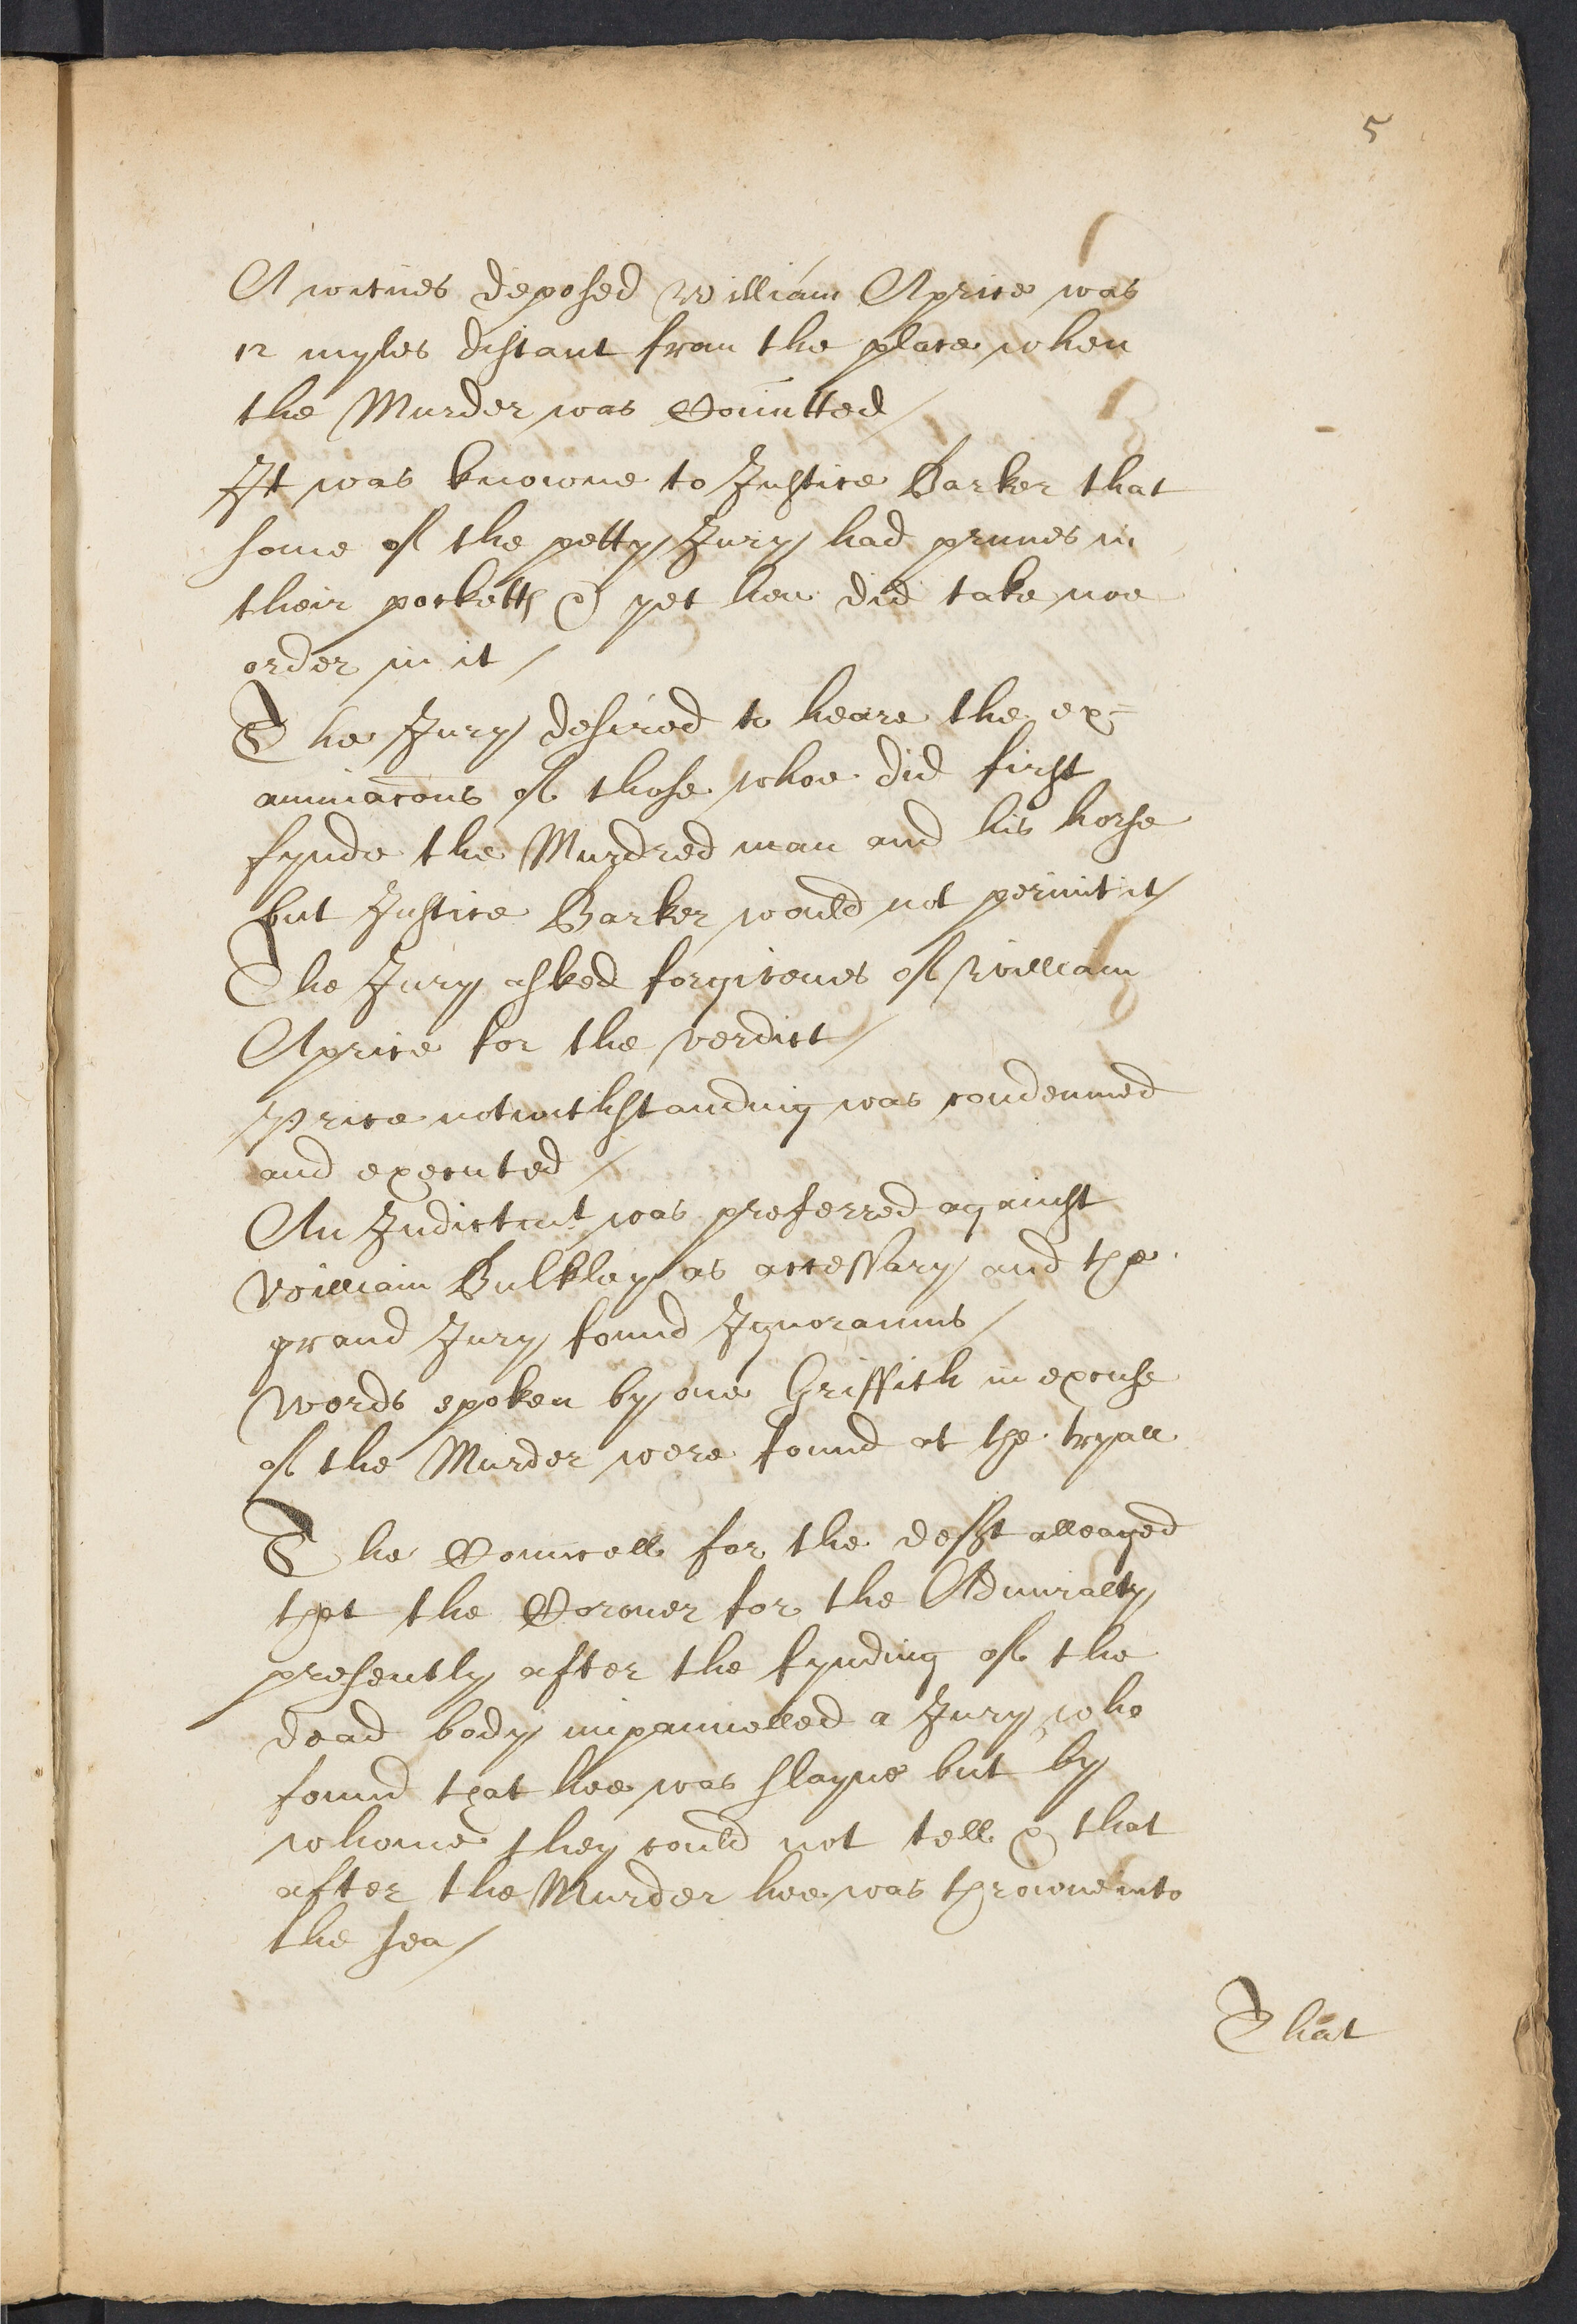 5
A witnes deposed William Aprice was
12 myles distant from the place when
the Murder was Com̄itted /
It was knowne to Justice Barker that
some of the petty Jury had prunes in
their pocketts & yet hee did take noe
order in it /
The Jury desired to heare the ex=
aminac̄ons of those whoe did first
fynde the Murdred man and his horse
but Justice Barker would not permit it /
The Jury asked forgivenes of William
Aprice for the verdict /
Price notwithstanding was condemned
and executed /
An Indictmt was preferred against
William Bulkley as accessary and the
grand Jury found Ignoramus /
Words spoken by one Griffith in excuse
of the Murder were found at the tryall
The Councell for the defft alleaged
that the Coroner for the Admiralty
presently after the fynding of the
dead body impannelled a Jury who
found that hee was slayne but by
whome they could not tell & that
after the Murder hee was throwne into
the sea /
That